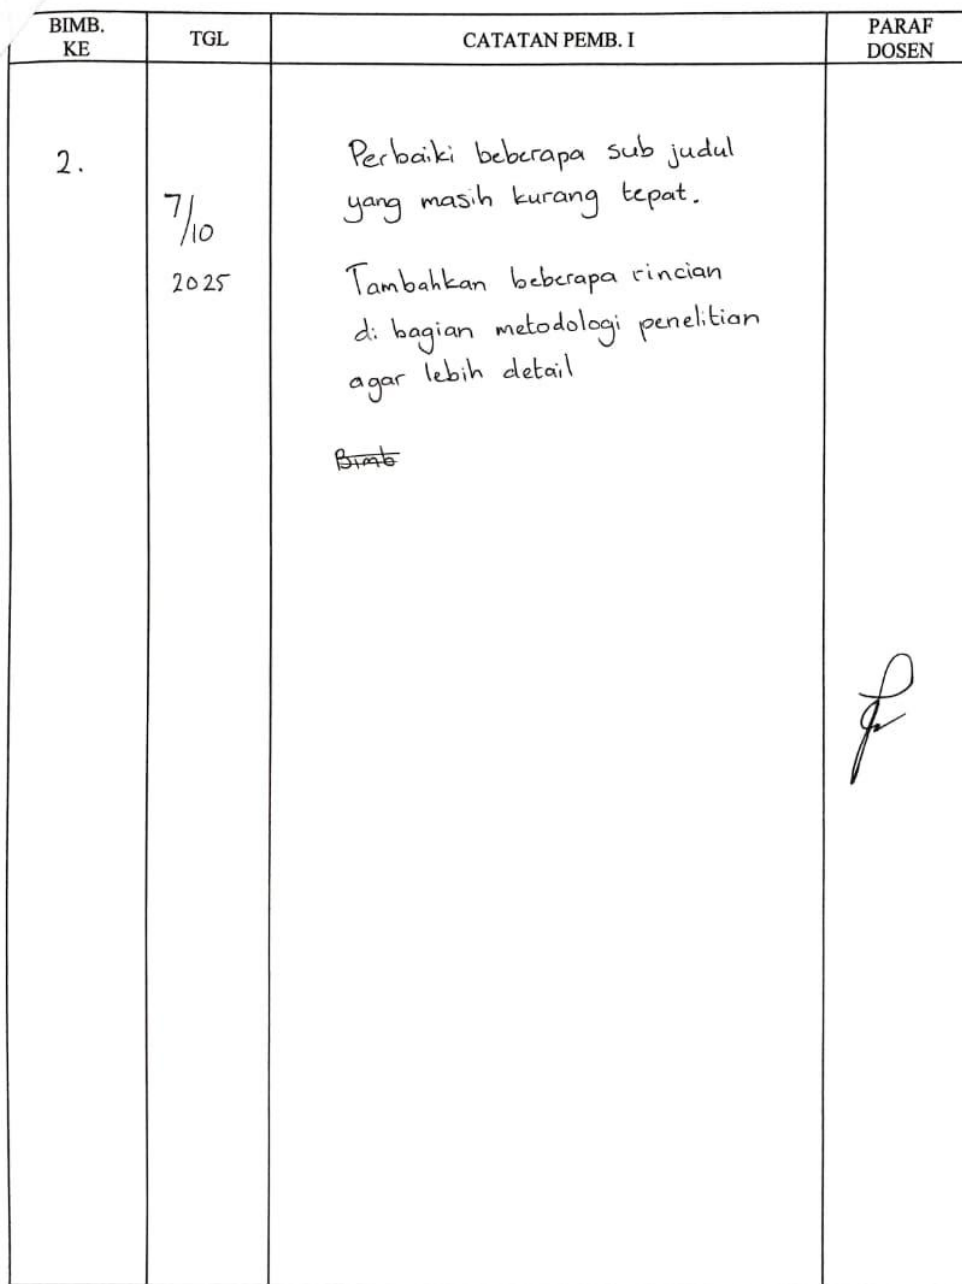 BIMB. KE TGL CATATAN PEMB. I PARAF DOSEN
2.
7/10
2025
Perbaiki beberapa sub judul
yang masih kurang tepat.
Tambahkan beberapa rincian
di bagian metodologi penelitian
agar lebih detail
Bimb